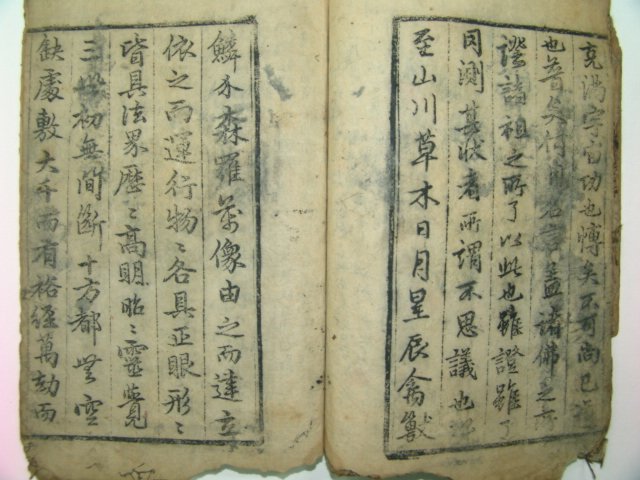 充滿宇宙功也博矣不可尚已
也普矣何用名言蓋諸佛之
證諸祖之所了以此也雖證雖了
罔測其狀者所謂不思議也
至山川草木日月星辰禽獸
鱗介森羅萬像由之而建立
依之而運行物〻各具正眼形〻
皆具法界歷〻高明昭〻靈覺
三世初無間斷十方都無空
缺處敷大千而有裕經萬劫而